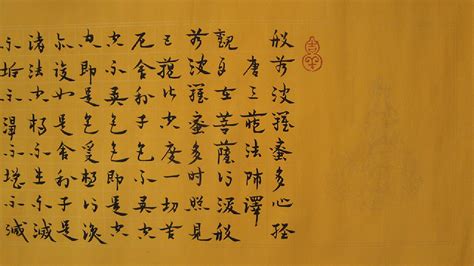 般若波羅蜜多心經
唐三藏法師譯
觀自在菩薩行深般
若波羅蜜多時照見
五蘊皆空度一切苦
厄舍利子色不異空
空不異色色即是空
空即是色受想行識
亦復如是舍利子是
諸法空相不生不滅
不垢不淨不增不減